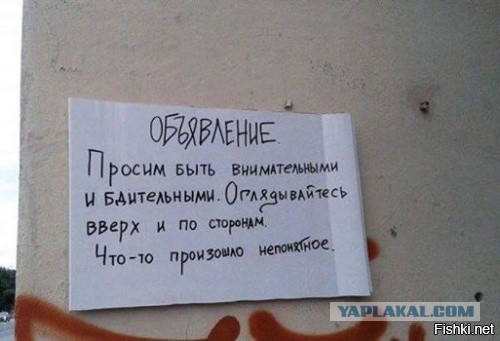 ОБЪЯВЛЕНИЕ.
Просим быть внимательными
и бдительными. Оглядывайтесь
вверх и по сторонам.
Что-то произошло непонятное.
YAPLAKAL.COM
Fishki.net